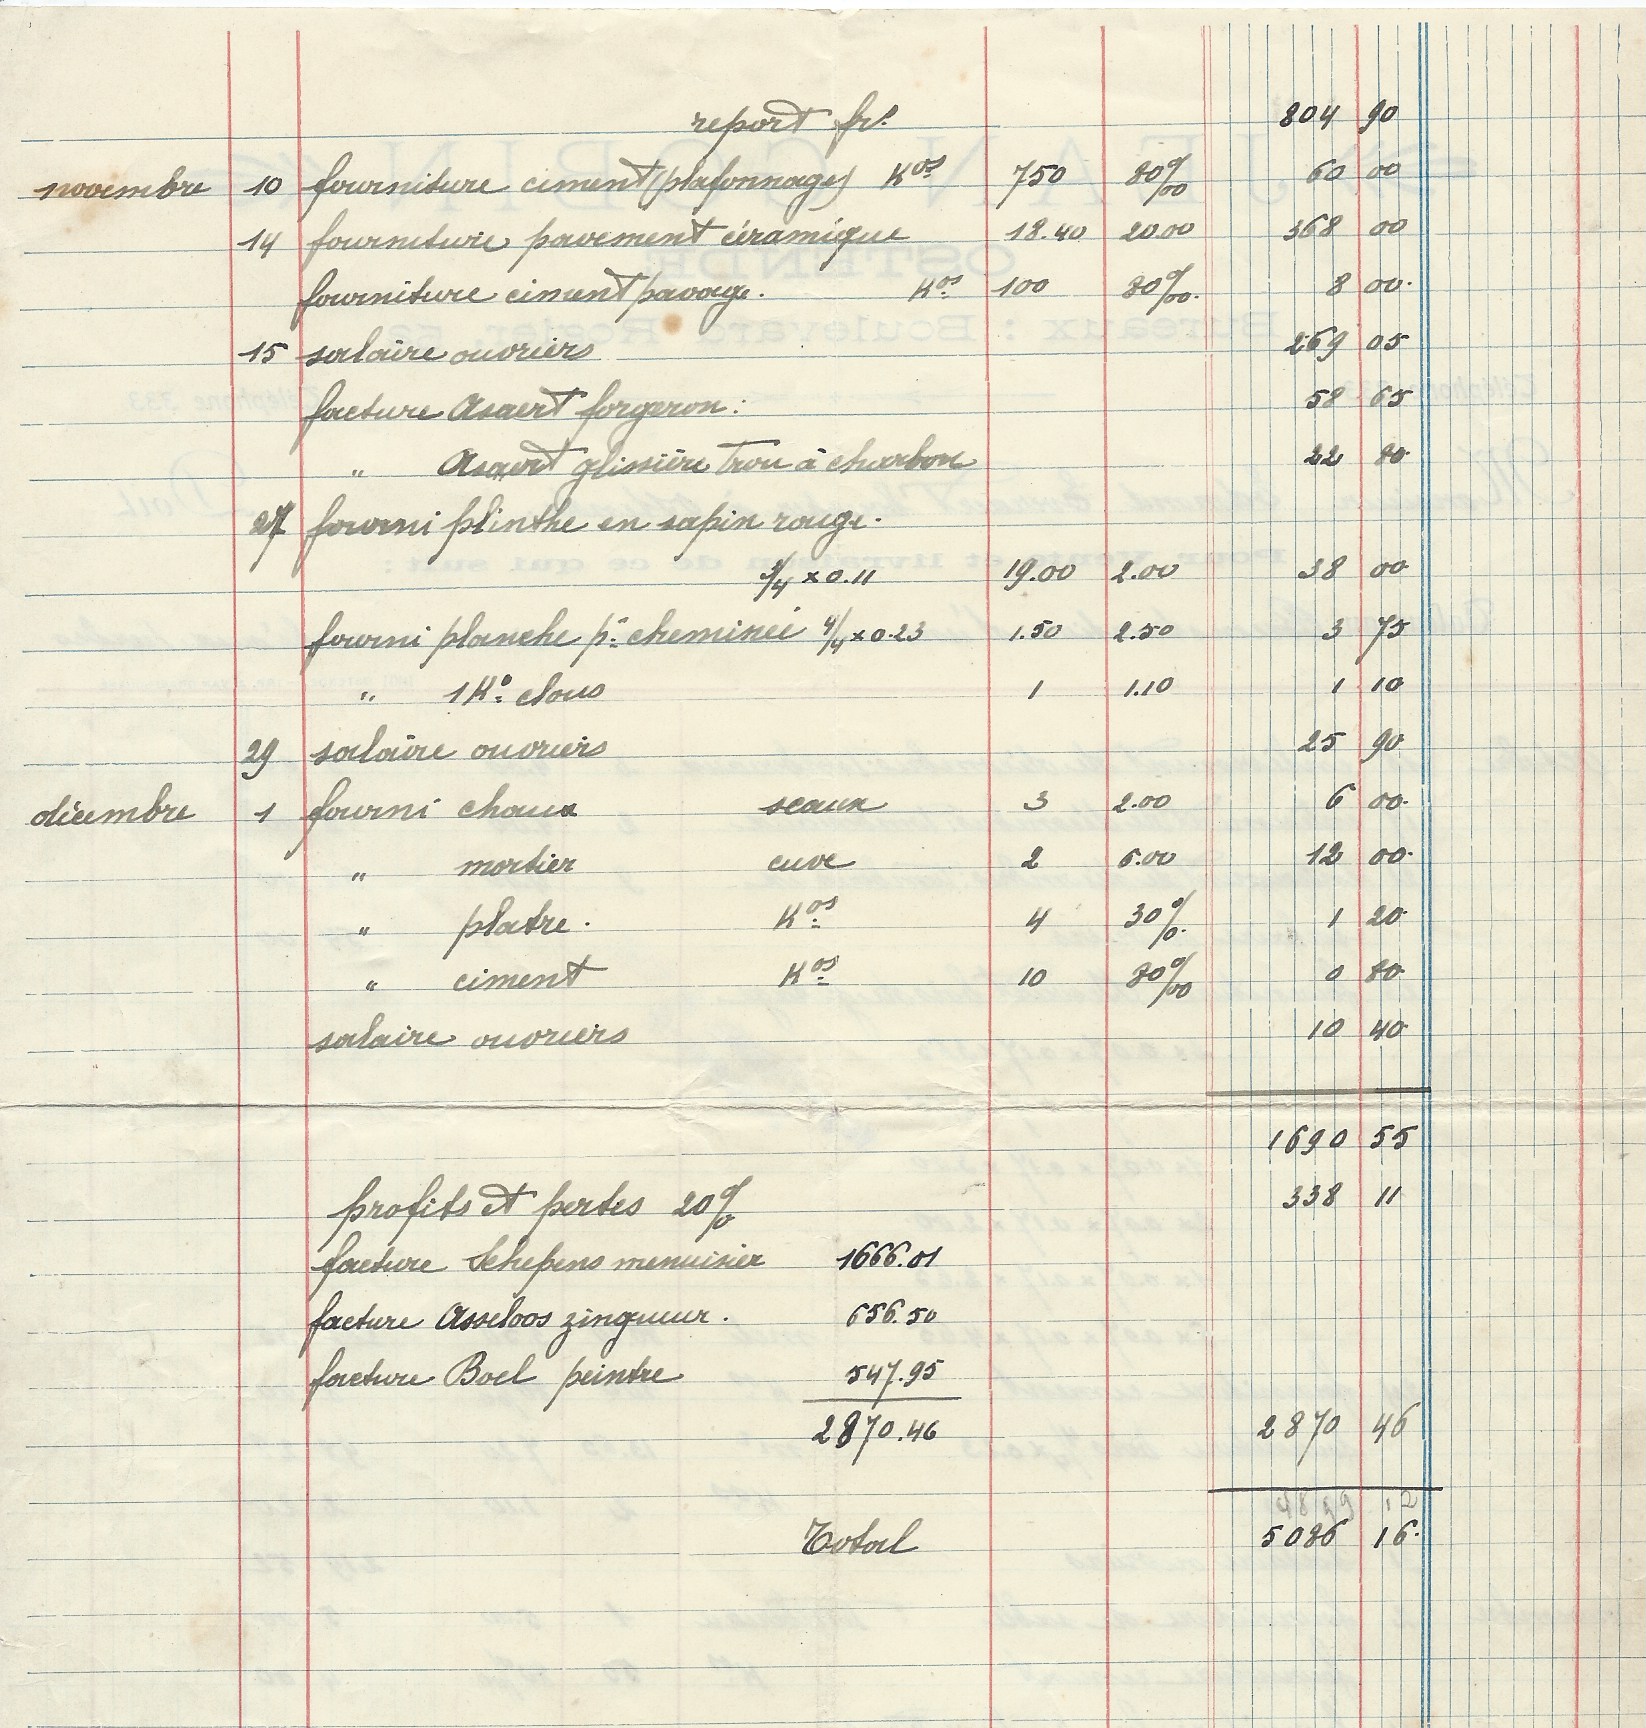 report frs. 804 90
novembre 10 fourniture ciment (plafonnage) Kos 750 80‰ 60 00
14 fourniture pavement céramique 18.40 20.00 368 00
fourniture ciment pavage. Kos 100 80‰. 8 00.
15 salaire ouvriers 269 05
facture Asaert forgeron: 58 65
" Asaert glissière trou à charbon 22 80.
27 fourni plinthe en sapin rouge.
4/4 x 0.11 19.00 2.00 38 00
fourni planche pr cheminée 4/4 x 0.23 1.50 2.50 3 75
" 1 Ko clous 1 1.10 1 10
29 salaire ouvriers 25 90
décembre 1 fourni chaux seaux 3 2.00 6 00.
" mortier cuve 2 6.00 12 00.
" platre. Kos 4 30%. 1 20.
" ciment Kos 10 80‰ 0 80.
salaire ouvriers 10 40
1690 55
profits et pertes 20% 338 11
facture Schepens menuisier 1666.01
facture Asseloos zingueur. 656.50
facture Boel peintre 547.95
2870.46 2870 46
Total 5086 16.
JEAN GOBIN
OSTENDE
Bureaux: Boulevard Rogier, 52
Téléphone 733
Doit
Pour vente et livraison de ce qui suit: